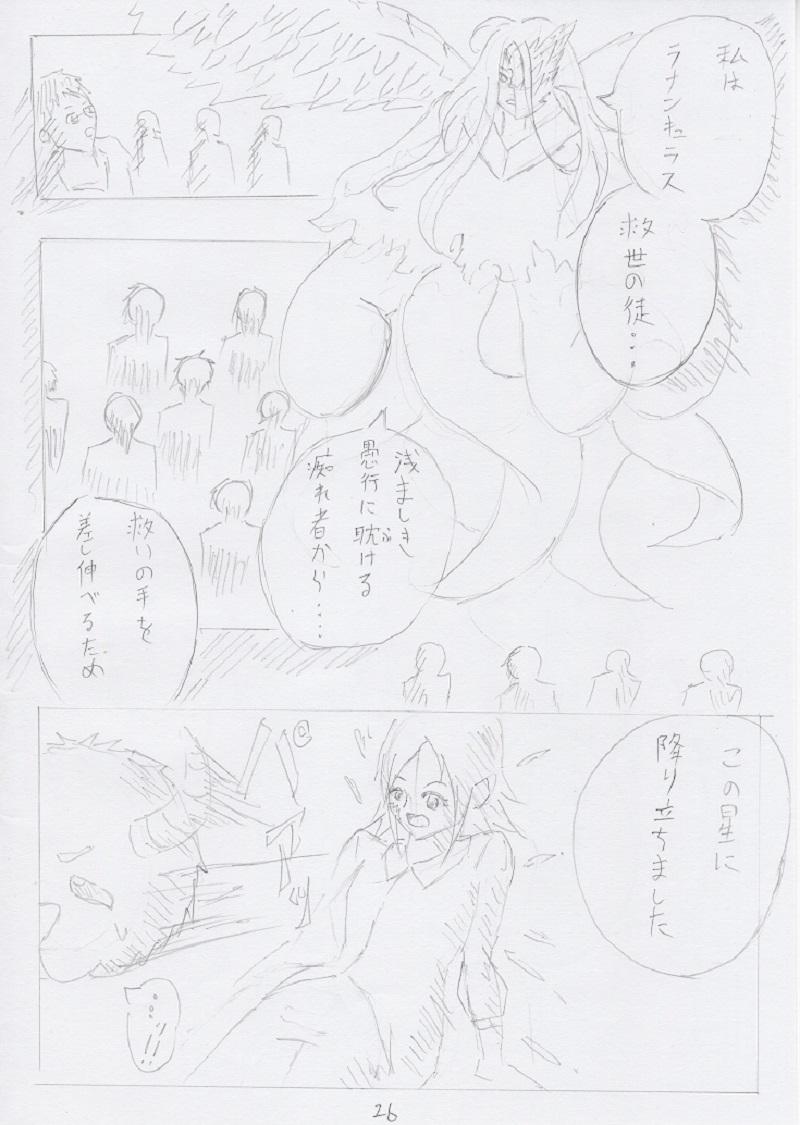 私は
ラナンキュラス
救世の徒・・・
浅ましき
愚行に耽ける
ふ
痴れ者から・・・・
救いの手を
差し伸べるため
この星に
降り立ちました
・・・ッ!!
26